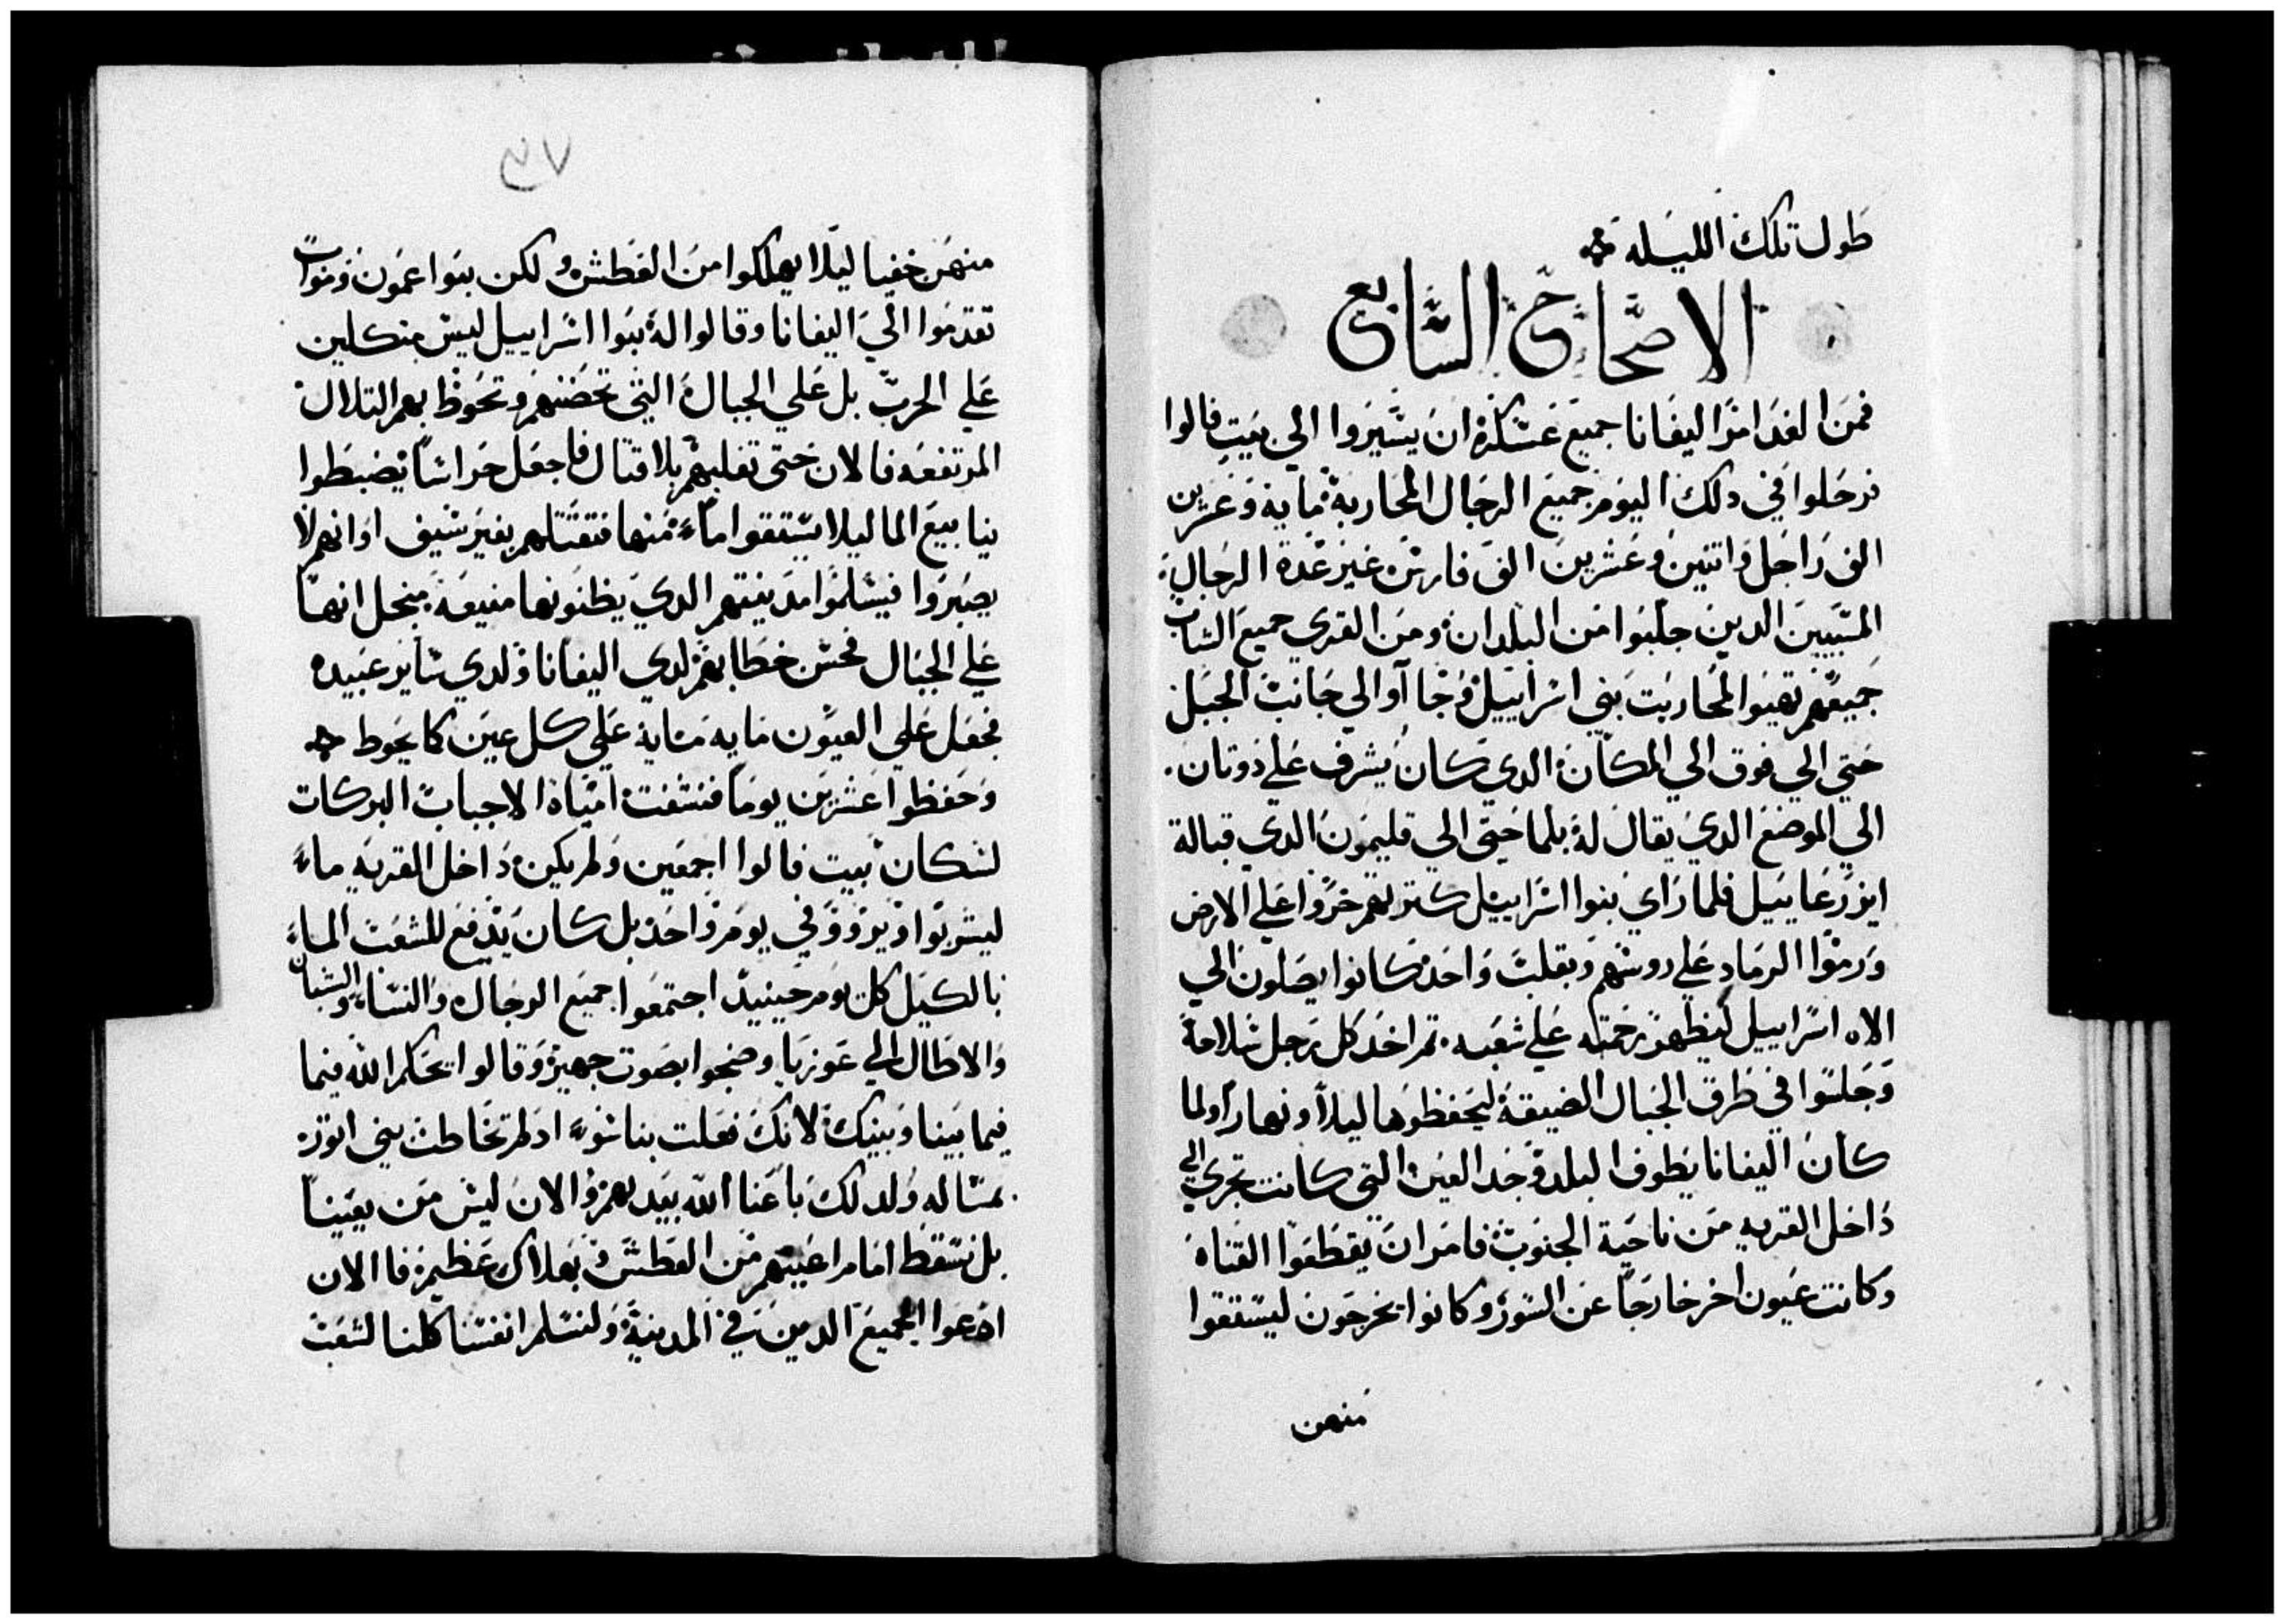 طول تلك الليله
الاصحاح السابع
فمن الغد امر اليفانا جميع عسكره ان يسيروا الي بيت فالوا
فرحلوا في دلك اليوم جميع الرجال المحاربة ماية وعشرين
الف راجل واتنين وعشرين الف فارس غير عدة الرجال
المسبيين الدين جلبوا من البلدان ومن القري جميع الشباب
جميعهم تهيوا لمحاربت بني اسراييل فوجا آوا الي جانب الجبل
حتي الي فوق الي المكان الدي كان يشرف علي دوتان
الي الموضع الدي يقال له بلما حتي الي قليمون الدي قبالة
ايزرعاييل فلما راي بنوا اسراييل كترتهم خروا علي الارض
ورموا الرماد علي روسهم وبقلب واحد كانوا يصلون الي
الاه اسراييل ليظهر رحمته علي شعبه تم اخد كل رجل سلاحة
وجلسوا في طرق الجبال الضيقة ليحفظوها ليلاً ونهاراً ولما
كان اليفانا يطوف البلد وجد العين التي كانت تجري الي
داخل القريه من ناحية الجنوب فامر ان يقطعوا القناه
وكانت عيون اخر خارجاً عن السور وكانوا يخرجون ليستقوا
منهن
٤٧
منهن خفيا ليلا يهلكوا من العطش ولكن بنوا عمون ومواب
تقدموا الي اليفانا وقالوا له بنوا اسراييل ليس متكلين
علي الحرب بل علي الجبال التي تحضنهم وتحوط بهم التلال
المرتفعه فالان حتي تغلبهم بلا قتال فاجعل حراساً يضبطوا
ينابيع الما ليلا يستقوا ماء منها فتقتلهم بغير سيف او انهم لا
يصبروا فيسلموا مدينتهم الدي يظنونها منيعة منجل انها
علي الجبال فحسن خطابهم لدي اليفانا ولدي ساير عبيده
فجعل علي العيون مايه مايه علي كل عين كا يحوط
وحفظوا عشرين يوماً فنشفت امياه الاجباب البركات
لسكان بيت فالوا اجمعين ولم يكن داخل القريه ماء
ليشربوا ويرووا في يوم واحد بل كان يدفع للشعب الماء
بالكيل كل يوم حينيد اجتمعوا جميع الرجال والنساء والشبان
والاطال الي عوزيا وضجوا بصوت جهير وقالوا يحكم الله فيما
فيما بينا وبينك لانك فعلت بنا سوء اد لم تخاطب بني اتور
بمساله ولدلك باعنا الله بيدهم والان ليس من يعيننا
بل نسقط امام اعينهم من العطش وبهلاك عظيم فالان
ادعوا الجميع الدين في المدينة ولنسلم انفسنا كلنا لشعب